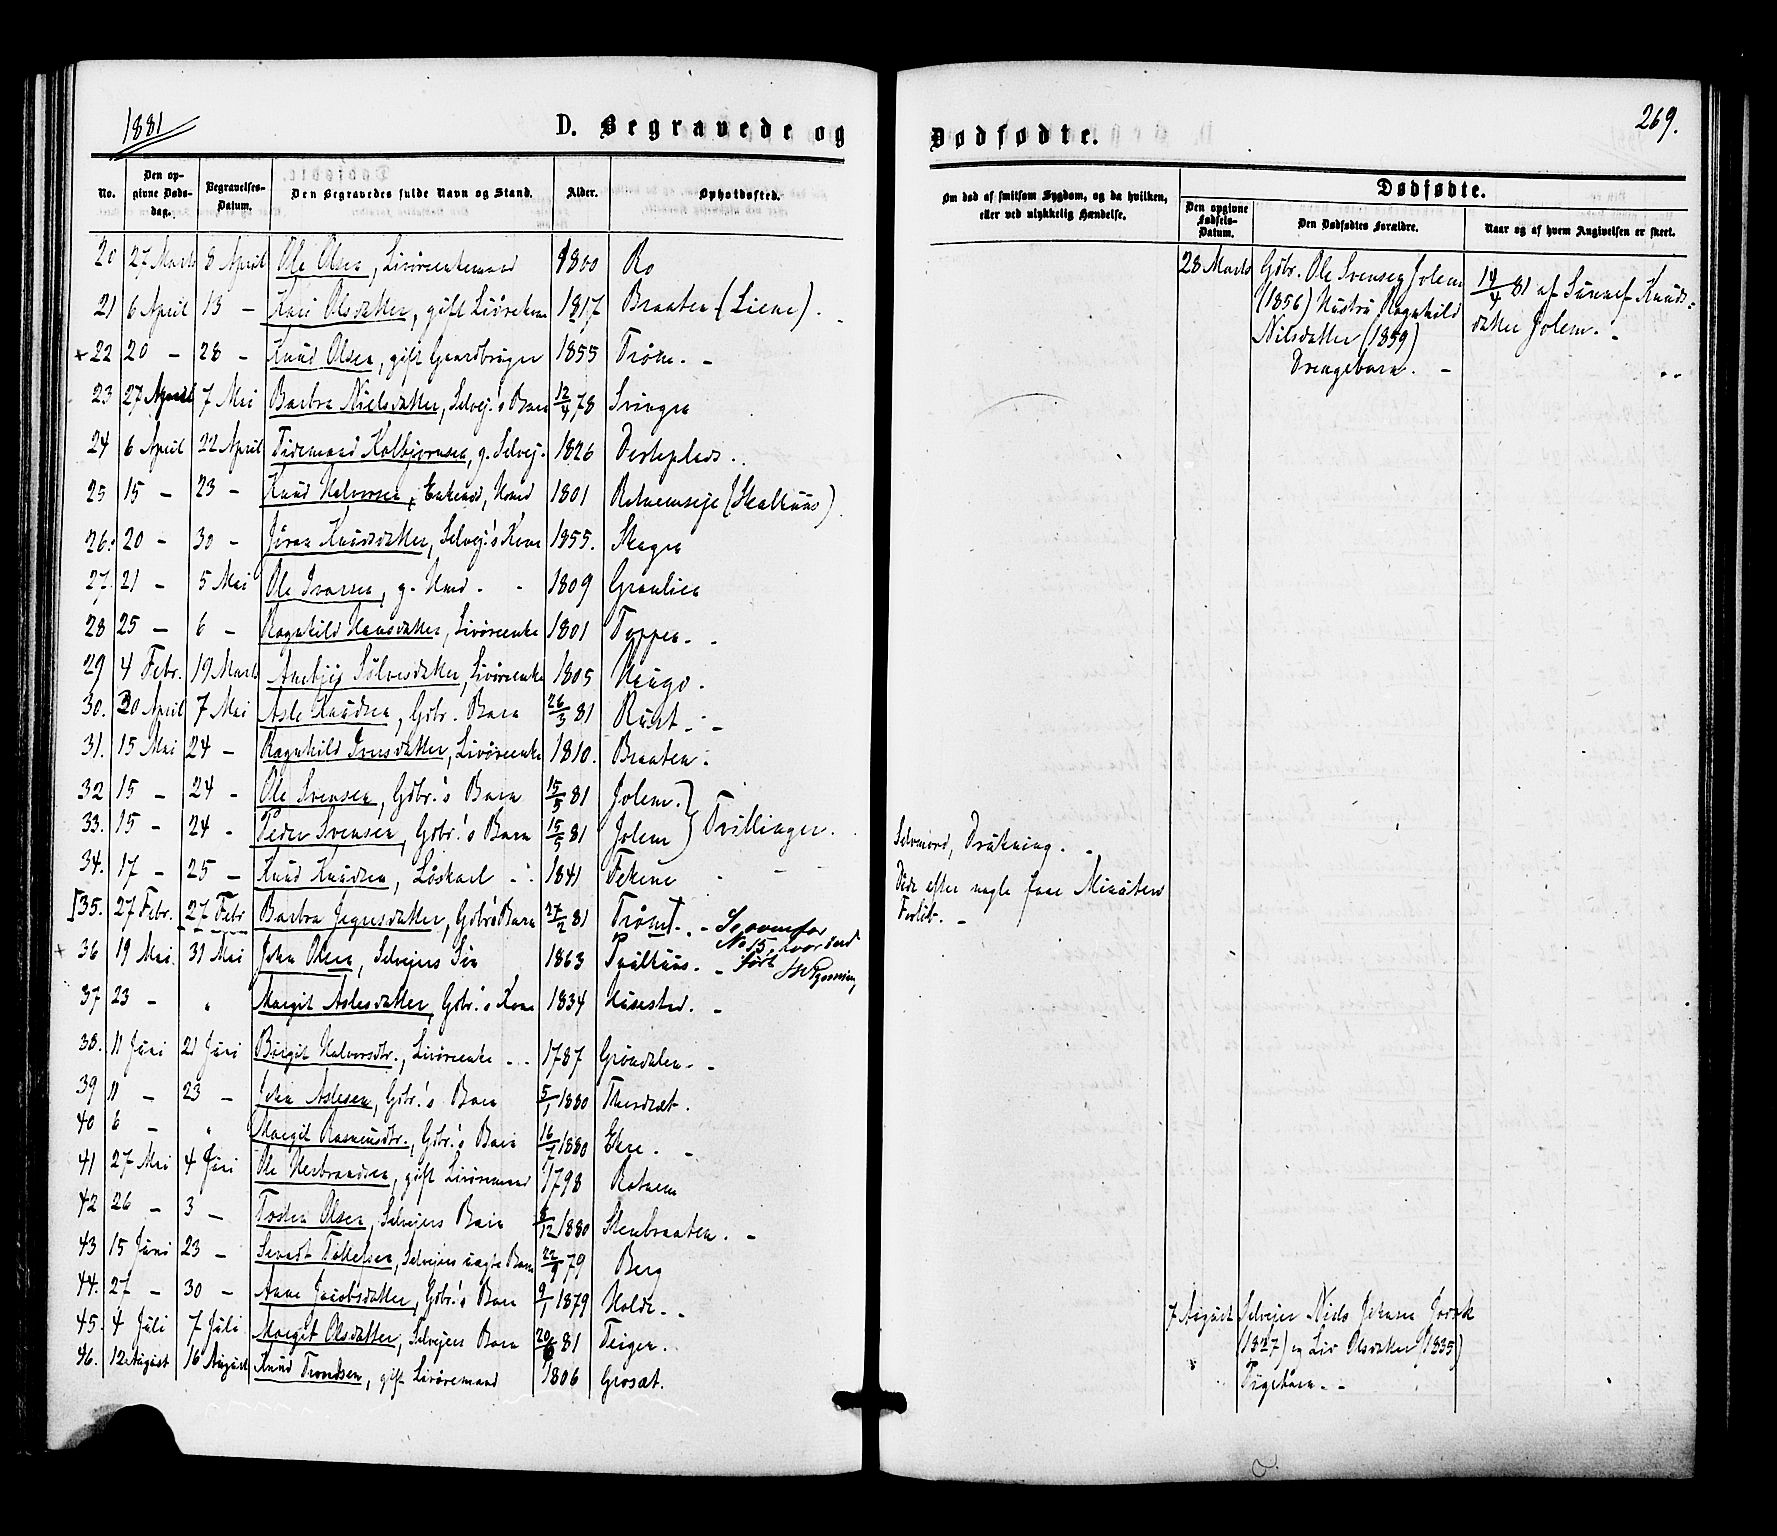 1881
D. Begravede og
No.
Den opgivne Dødsdag.
Begravelses-Datum.
Den Begravedes fulde Navn og Stand.
Alder.
Opholdssted.
20 27 Marts 8 April Ole Olsen, Livøreenkemand 1800 Ro
21 6 April 13 – Kari Olsdatter, gift Livørekone 1817 Braaten (Liene).
+ 22 20 – 28 – Knud Olsen, gift Gaardbruger 1855 Trøim. –
23 27 April 7 Mai Barbra Nielsdatter, Selvej.'s Barn 12/4 78 Svingen
24 6 April 22 April Tidemand Kolbjørnsen, g. Selvej. 1826
25 15 – 23 – Knud Halvorsen, Enkemd, Hmd 1801 Rotneimseje (Skalhuus).
26. 20 – 30 – Jøran Knudsdatter, Selvej's Kone 1855. Skagen
27. 21 – 5 Mai Ole Ivarsen, g. Hmd. 1809 Granlien
28 25 – 6 – Ragnhild Hansdatter, Livøreenke 1801 Toppen. –
29 4 Febr. 19 Marts Anebjør Sølvesdatter, Livøreenke 1805
30. 20 April 7 Mai Asle Knudsen, Gdbr. Barn 26/3 81 Rust. –
31. 15 Mai 24 – Ragnhild Iversdatter, Livøreenke 1810. Braaten.
32 15 – 24 – Ole Svensen, Gdbr.'s Barn 15/5 81 Jolem. } Tvillinger.
33. 15 – 24 – Peder Svensen, Gdbr.'s Barn 15/5 81 Jolem
34. 17 – 25 – Knud Knudsen, Løskarl 1841 Fekene
35. 27 Febr. 27 Febr Barbra Jegersdatter, Gdbr's Barn 27/2 81 Trøim. – Se ovenfor
No 15, hvor ind
ført
+ 36 19 Mai. 31 Mai John Olsen, Selvejers Søn 1863 –
37 23 – " Margit Aslesdatter, Gdbr.'s Kone 1834 Husested. –
38. 11 Juni 21 Juni Birgit Halvorsdtr., Livøreenke 1787 Grøndalen. –
39 11 – 23 – John Aslesen, Gdbr.'s Barn 5/1 1880
40 6 – " Margit Rasmusdtr., Gdbr.'s Barn 16/7 1880 Ekre. –
41 27 Mai 4 Juni Ole Herbrandsen, gift Livøremand 1798 Rotneim
42 26 – 3 – Tosten Olsen, Selvejers Barn /12 1880 Stenbraaten. –
43 15 Juni 23 – Tollefsen, Selvejers uægte Barn 22/9 79 Berg
44. 27 – 30 – Anne Jacobsdatter, Gdbr.'s Barn 9/1 1879 Holde. –
45. 4 Juli 7 Juli Margit Olsdatter, Selvejers Barn 20/6 81 Teigen.
46. 12 August 16 August Knud Trondsen, gift Livøremand 1806 Grosæt.
269.
Dødfødte.
Om død af smitsom Sygdom, og da hvilken, eller ved ulykkelig Hændelse.
Dødfødte.
Den opgivne Fødsels-Datum.
Den Dødfødtes Forældre.
Naar og af hvem Angivelsen er skeet.
28 Marts Gdbr. Ole Svensen Jolem
(1856) Hustru Ragnhild
Nilsdatter (1859)
Drengebarn. –
14/4 81 af Sunnef Knuds-
datter Jolem. –
Selvmord, Drukning. –
Døde efter nogle faae Minuters
Forløb. –
7 August Selvejer Niels Johnsen
(1827) og Liv Olsdatter (1835)
Pigebarn. –